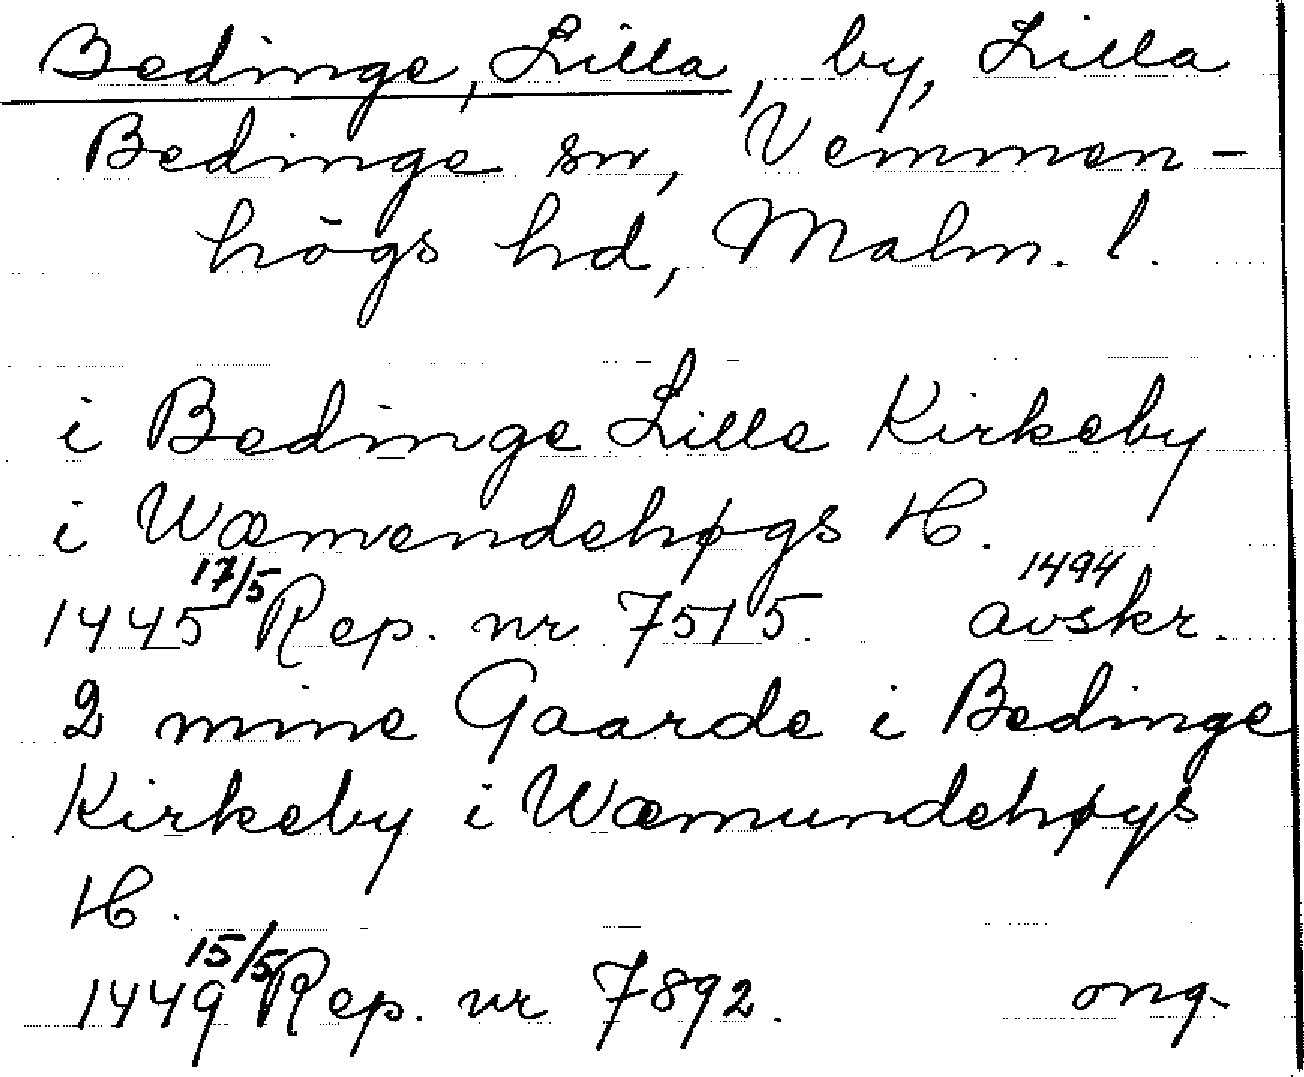 Bedinge, Lilla, by, Lilla
Bedinge sn, Vemmen-
högs hd, Malm. l.
i Bedinge Lille Kirkeby
i Wæmendehøgs H.
1445 17/5 Rep. nr 7515. 1494 avskr.
2 mine Gaarde i Bedinge
Kirkeby i Wæmundehøys
H.
1449 15/5 Rep. nr 7892. ong.